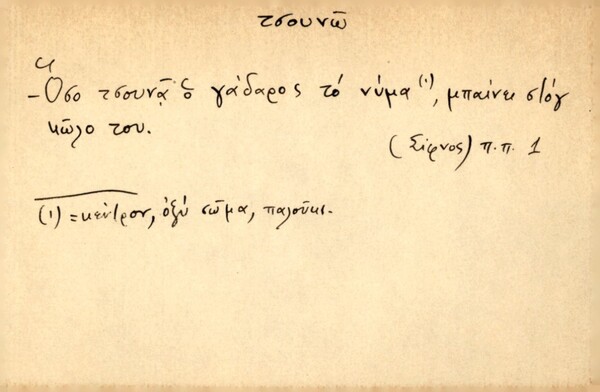 τσουνῶ
- Ὅσο τσουνᾷ ὁ γάδαρος τό νύμα (1), μπαίνει στόγ
κῶλο του.
(Σίφνος) π.π. 1
(1) = κεντρον, ὀξύ σῶμα, παλοῦκι.